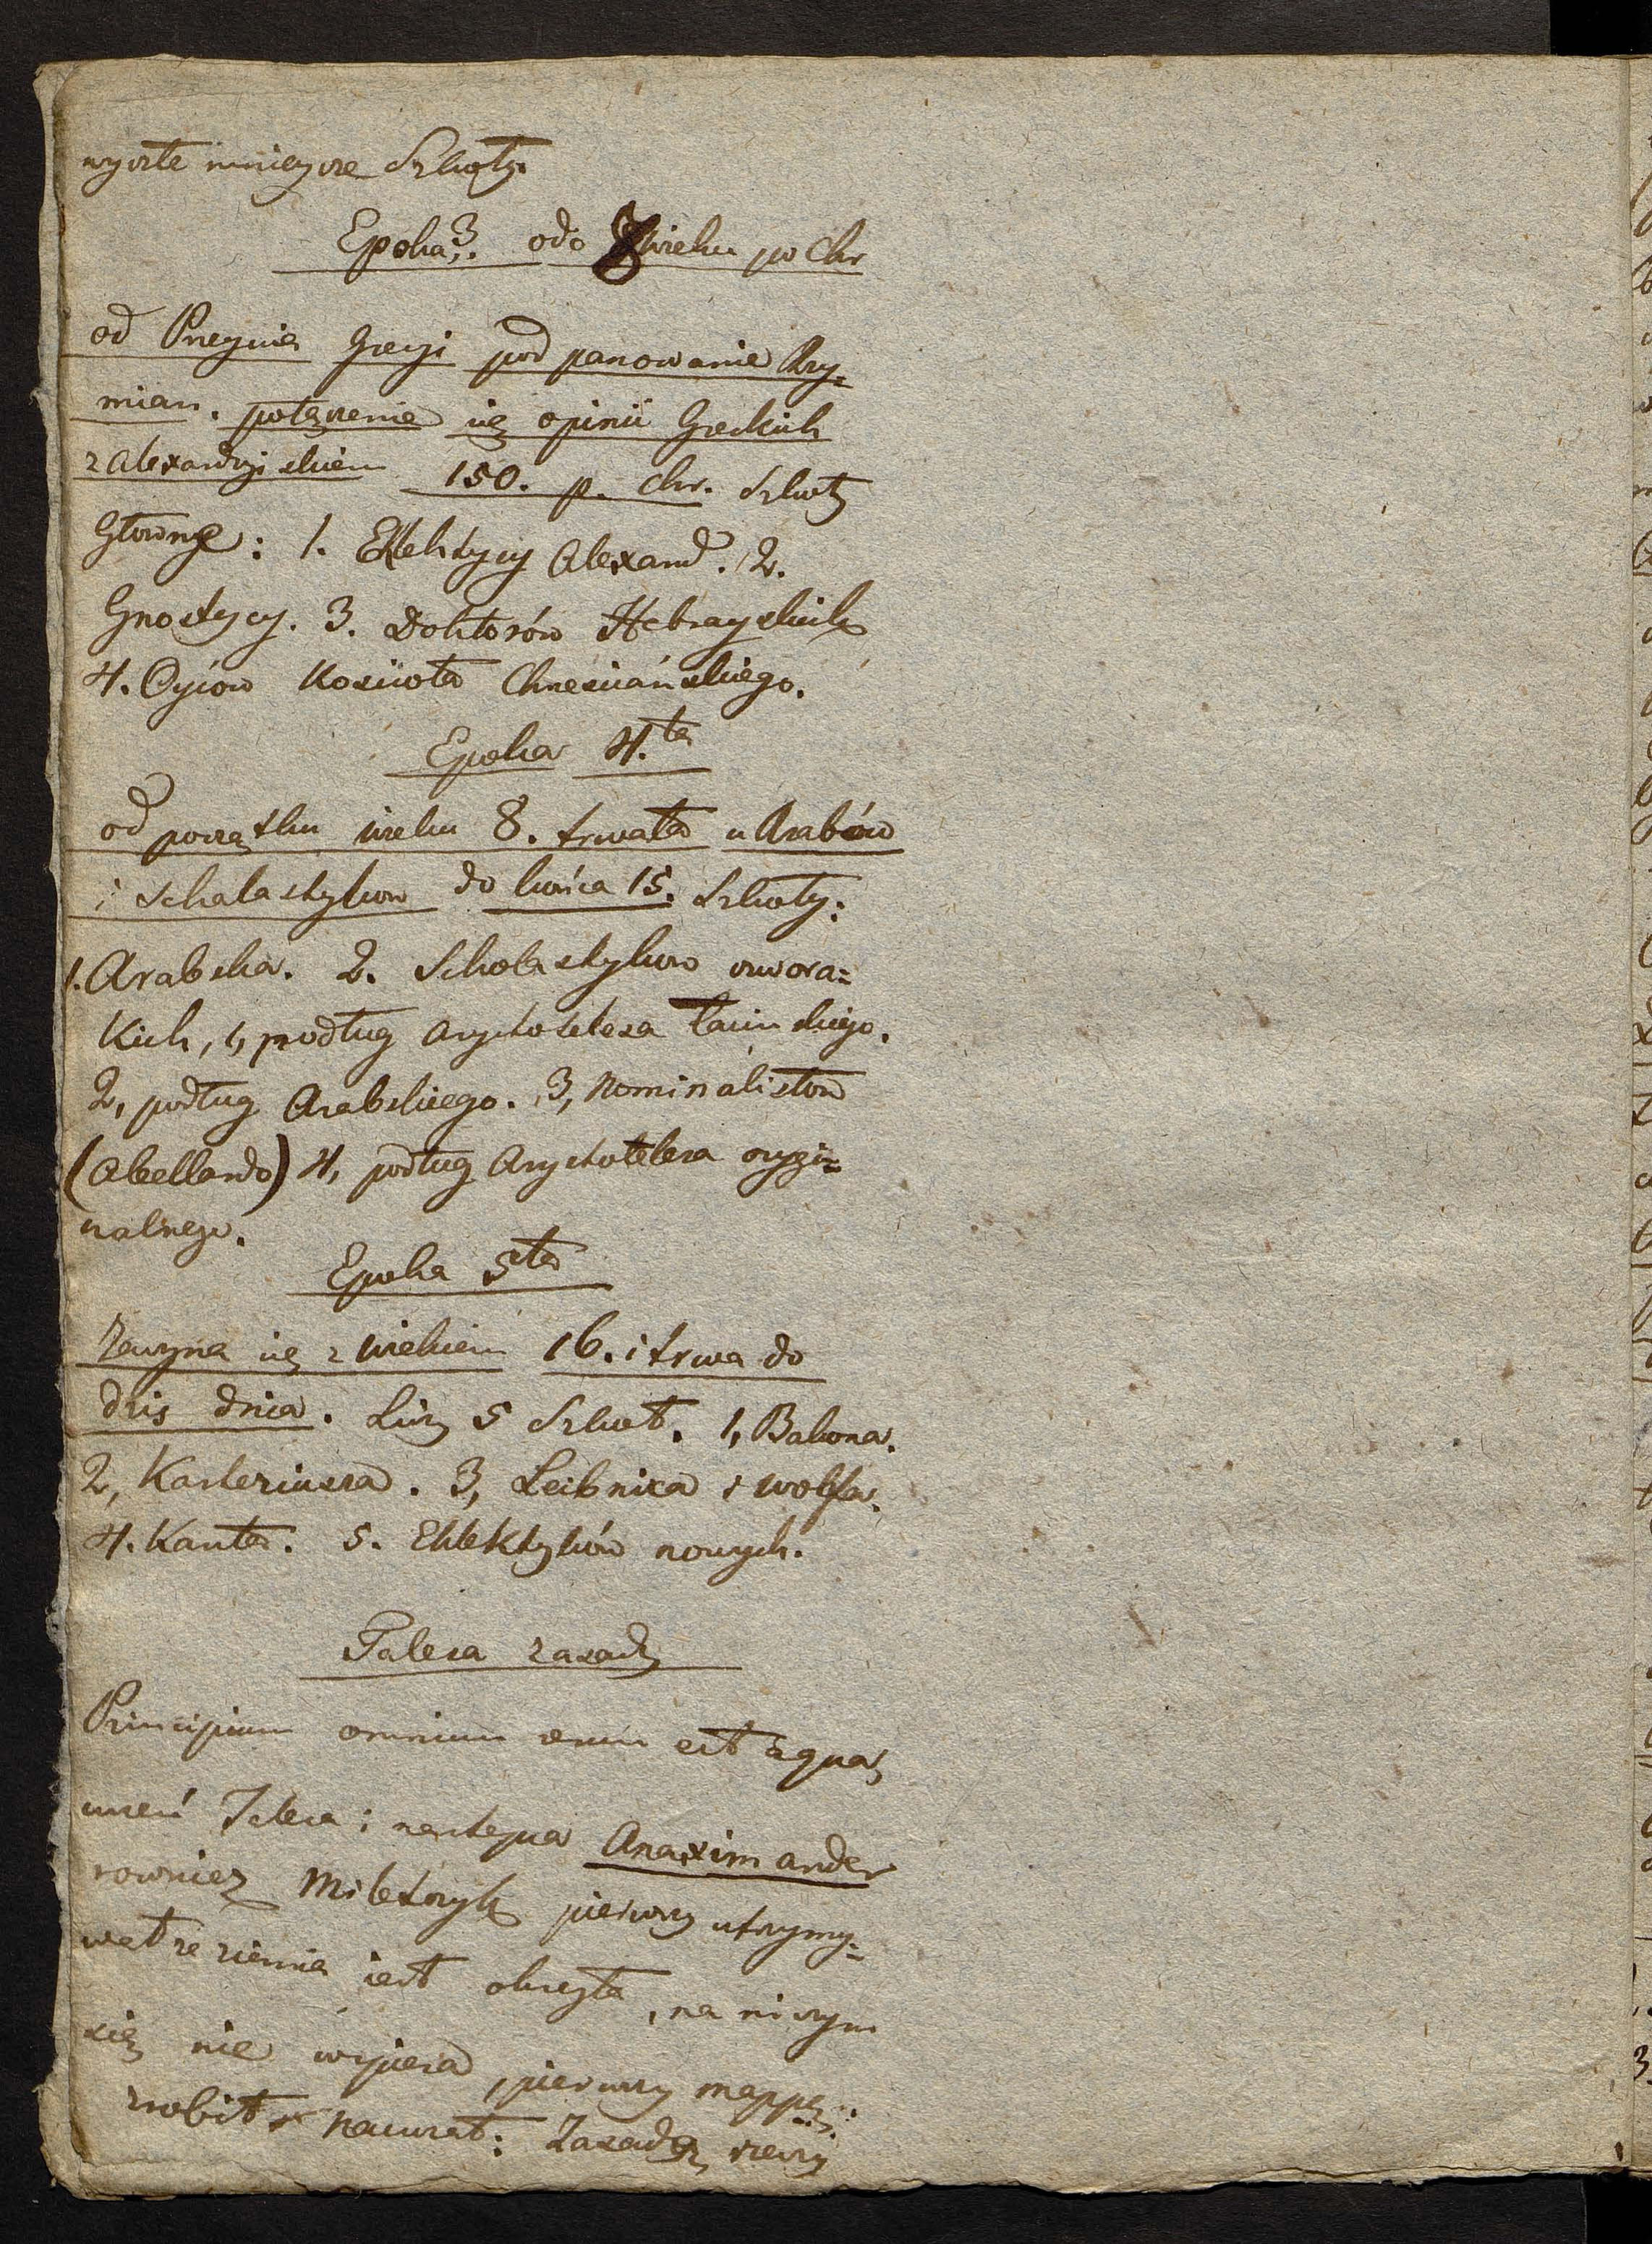 wyszłe mnieysze Szkoły.
Epoka 3. odo 8 wieku po Chr
od Przeyścia Grecyi pod panowanie Rzy=
mian. połączenie się opinii Greckich
z Alexandryiskiem 150. p. Chr. Szkoły
Główne: 1. Eklektycy Alexand. 2.
Gnostycy. 3. Doktorów Hebrayskich
4. Oyców Kościoła Chrześciańskiego.
Epoka 4.ta
od początku wieku 8. trwała u Arabów
i Scholastyków do końca 15. Szkoły:
1. Arabska. 2. Scholastyków czwora=
kich, 1, podług Arystotelesa Łacinskiego.
2, podług Arabskiego. 3, Nominalistów
(Abellarda) 4, podług Arystotelesa orygi=
nalnego.
Epoka 5ta
Zaczyna się z wiekiem 16. i trwa do
dziś dnia. Liczy 5 Szkoł. 1, Bakona.
2, Karteziusza. 3, Leibnica i Wolfa.
4. Kanta. 5. Eklektyków nowych.
Talesa zasady
Principium omnium rerum est aqua,
uczeń Talesa i następca Anaximander
rownież Miletczyk pierwszy utrzymy=
wał że ziemia iest okrągła, na niczym
się nie wspiera, pierwszy mappę
zrobił nauczał: Zasadą rzeczy